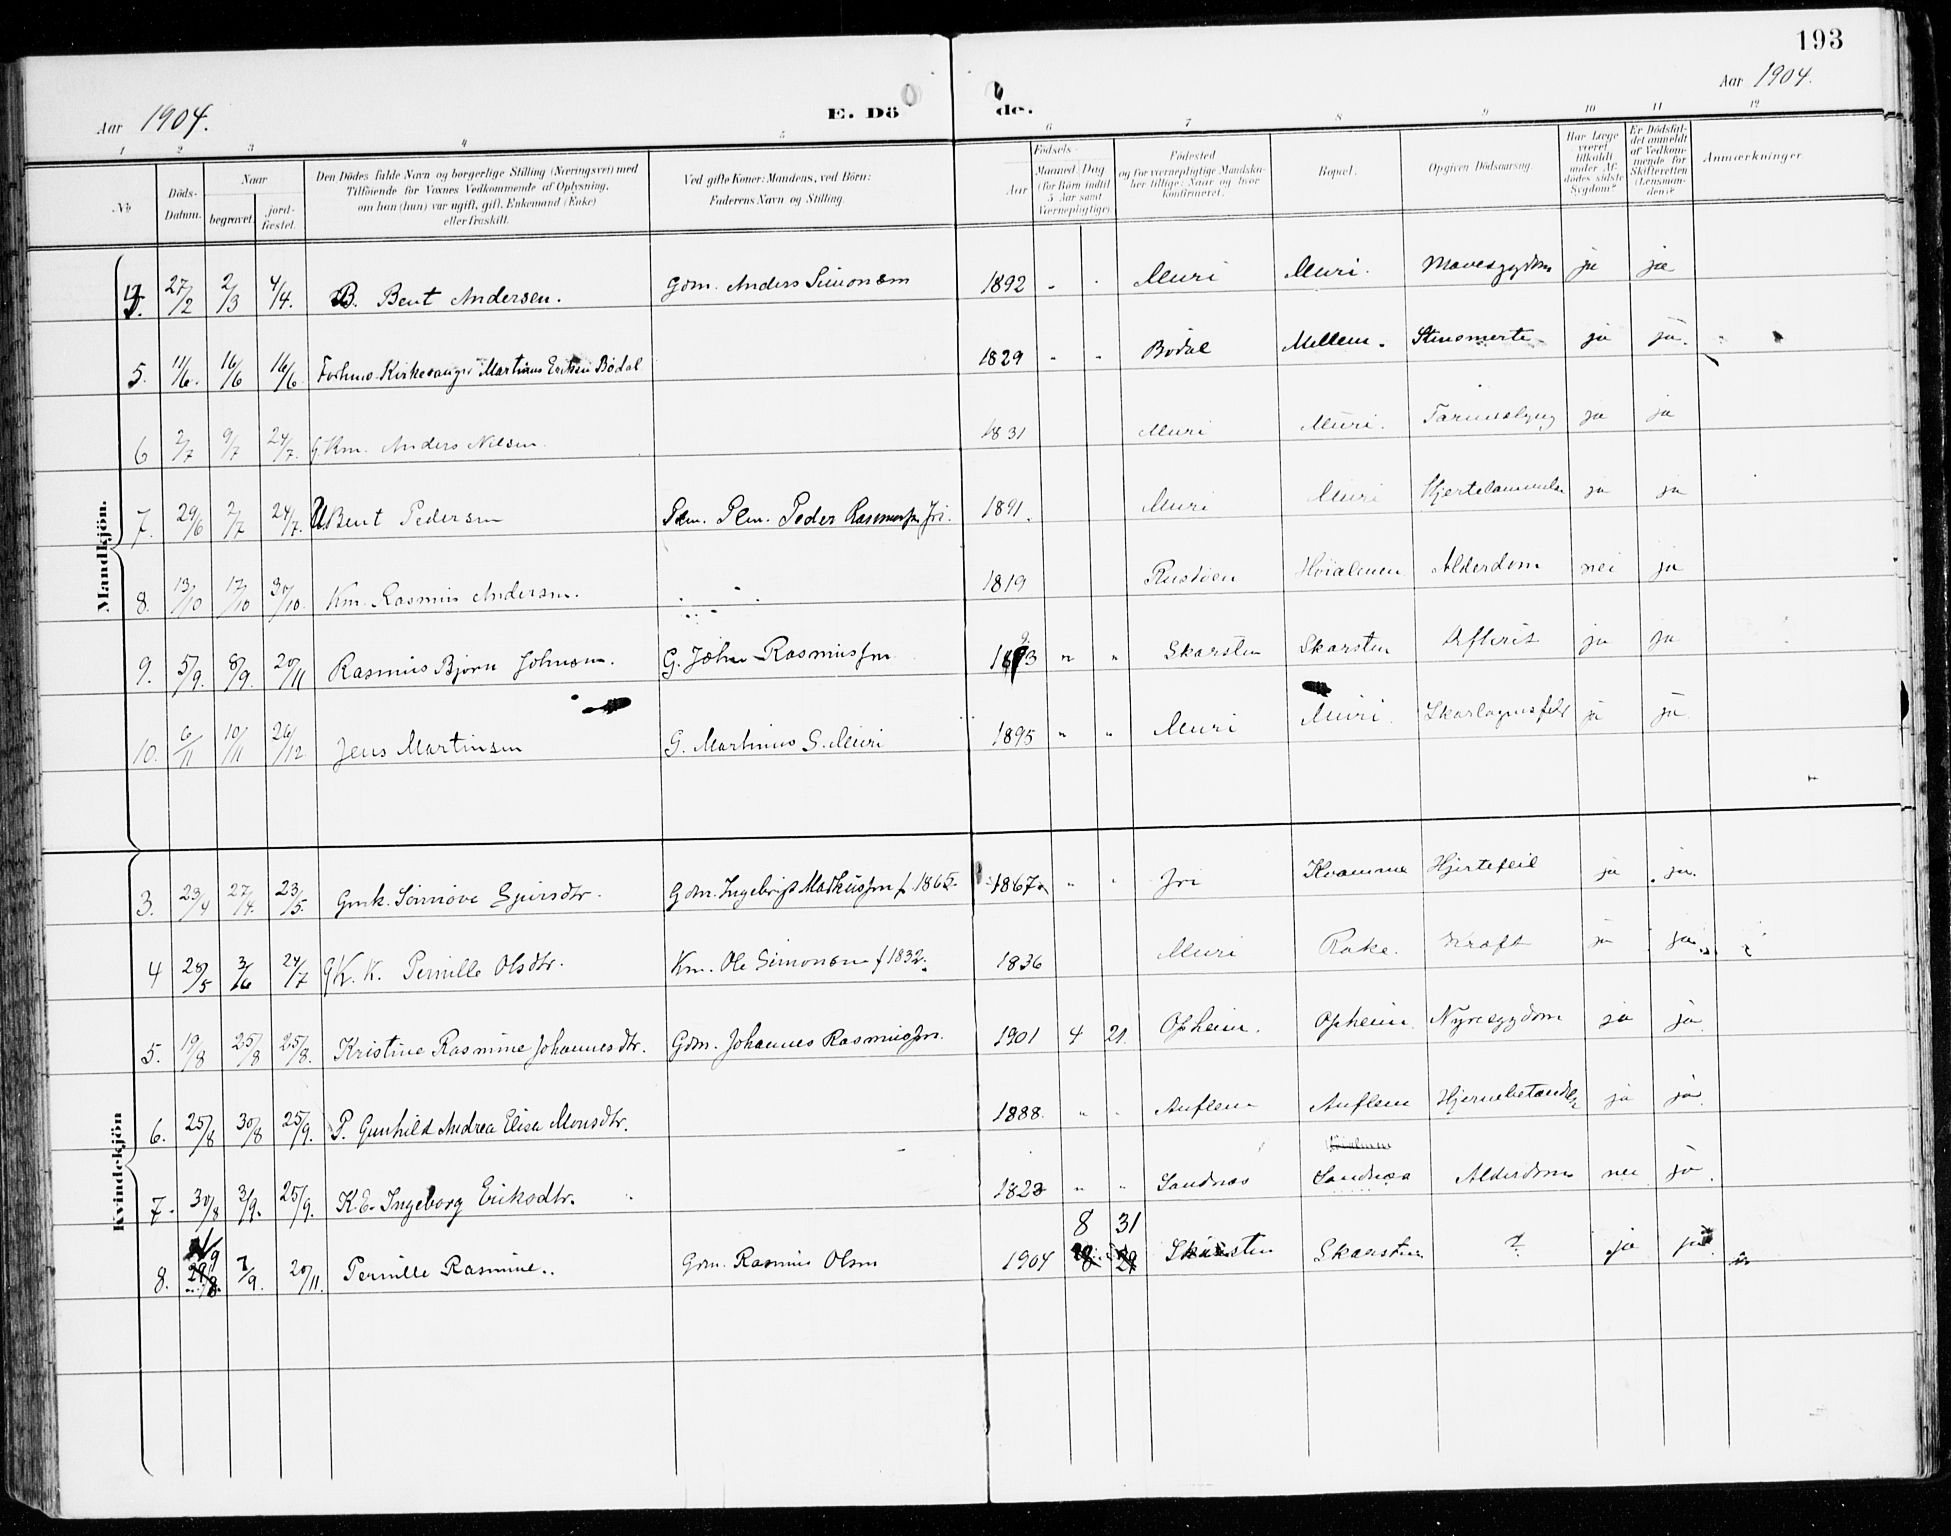 193
Aar 1904.
E. Dö de.
Aar 1904.
1 2 3 4 5 6 7 8 9 10 11 12
No
Döds-Datum.
Naar
begravet.
jord-fæstet.
Den Dödes fulde Navn og borgerlige Stilling (Næringsvei) med
Tilföiende for Voxnes Vedkommende af Oplysning,
om han (hun) var ugift, gift, Enkemand (Enke)
eller fraskilt.
Ved gifte Koner: Mandens, ved Börn:
Faderens Navn og Stilling.
Födsels-
Aar
Maaned Dag
(for Börn indtil
5 Aar samt
Værnepligtige).
Födested
og for værnepligtige Mandska-
ber tillige: Naar og hvor
konfirmeret.
Bopæl.
Opgiven Dödsaarsag.
Har Læge
været
tilkaldt
under Af-
dödes sidste
Sygdom?
Er Dödsfal-
det anmeldt
af Vedkom-
mende for
Skifteretten
(Lensman-
den)?
Anmærkninger
Mandkjön.
4. 27/2 2/3 4/4. B. Bent Andersen. Gdm. Anders Simonsen 1892 " " Muri Muri. Mavesygdom ja ja
5. 11/6. 16/6 16/6. Kirkesanger Martinus Eriksen Bödal 1829 " " Bödal Mellem. ja ja.
6 2/7 9/7 24/7. G. Km. Anders Nilsen 1831 Muri Muri. ja ja
7. 29/6 2/7 24/7. U. Bent Pedersen Peder Rasmussen Jri. 1891. Muri Muri ja ja
8. 13/10 17/10 30/10. Km. Rasmus Andersen. 1819 Rustöen Höialmen Alderdom nei ja
9. 5/9. 8/9. 20/11 Rasmus Bjørn Johnsen. G. John Rasmussen 1893 " " Skarsten Skarsten ja ja
10. 6/11 10/11 26/12 Jens Martinsen G. Martinus S. Muri 1895 " " Muri Muri. Skarlagensfeb ja ja
Kvindekjön
3. 23/4 27/4. 23/5. Gmk. Sinniöve Sjursdtr. Gdm. Ingebrigt Markussen f 1865. 1867. " " Jri Kvamme Hjertefeil ja ja.
4 28/5 3/6 24/7 G K. K. Pernille Olsdtr. Km. Ole Simonsen f 1832. 1836 Muri Rake. Kræft ja ja
5. 19/8 25/8 25/8. Kristine Rasmine Johannesdtr. Gdm. Johannes Rasmussen. 1901 4 21. Opheim. Opheim Nyresygdom ja ja
6. 25/8 30/8 25/9. P. Gunhild Andrea Elisa Monsdtr. 1888. " " Auflem Auflem Hjernebetændelse ja ja
7. 30/8 3/9. 25/9. K.E. Ingeborg Eriksdtr. 1823 " " Sandnæs Sandnæs Alderdom nei ja.
8. 1/9 7/9. 20/11. Pernille Rasmine. Gdm. Rasmus Olsen 1904 8 31 Skarsten Skaarsten ? ja ja.